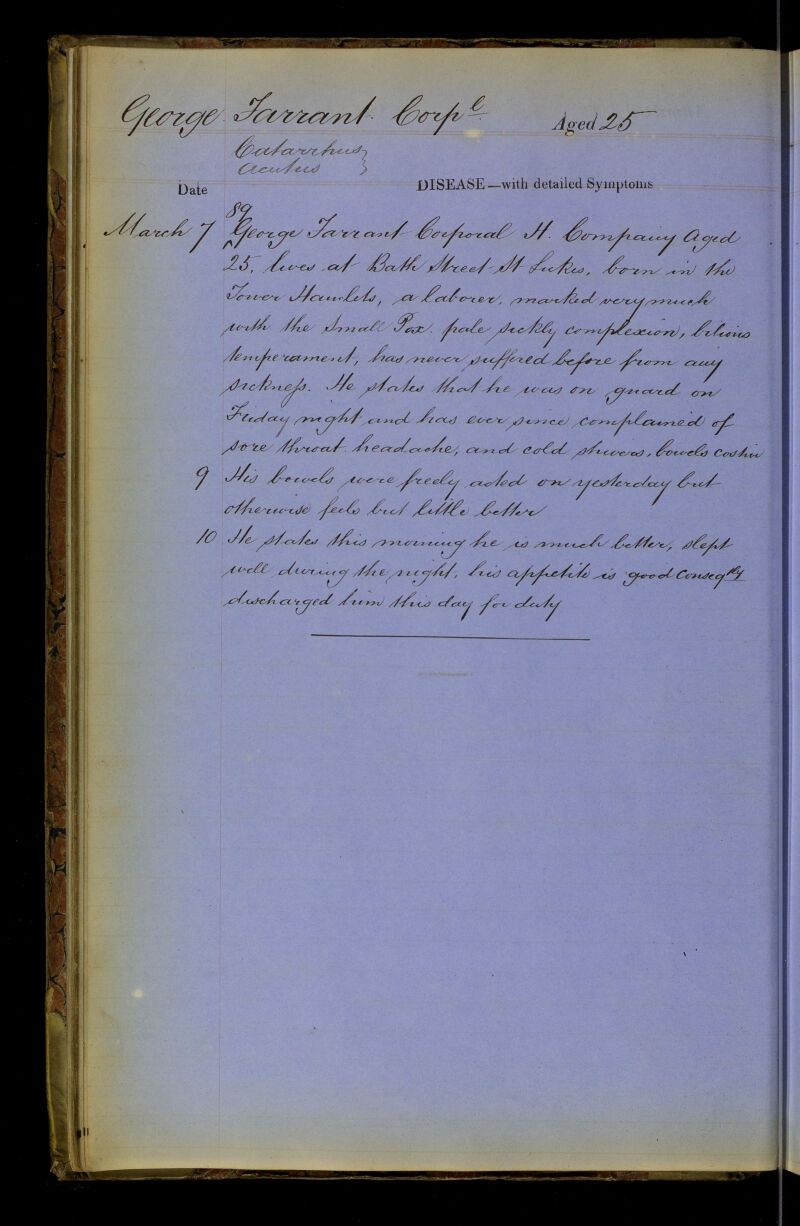 George Tarrant. Corpl Aged 25
Catarrhus
Acutus
Date DISEASE—with detailed Symptoms
89
March 7 George Tarrant Corporal H. Company Aged
25, lives at Bath Street St Lukes, born in the
Tower Hamlets, a laborer, marked very much
with the Small Pox. pale sickly complexion, bilious
temperament, has never suffered before from any
sickness. He states that he was on guard on
Friday night and has ever since complained of
sore throat headache, and cold shivers, bowels costive
9 His bowels were freely acted on yesterday but
otherwise feels but little better
10 He states this morning he is much better, slept
well during the night, his appetite is good Conseqtly
discharged him this day for duty